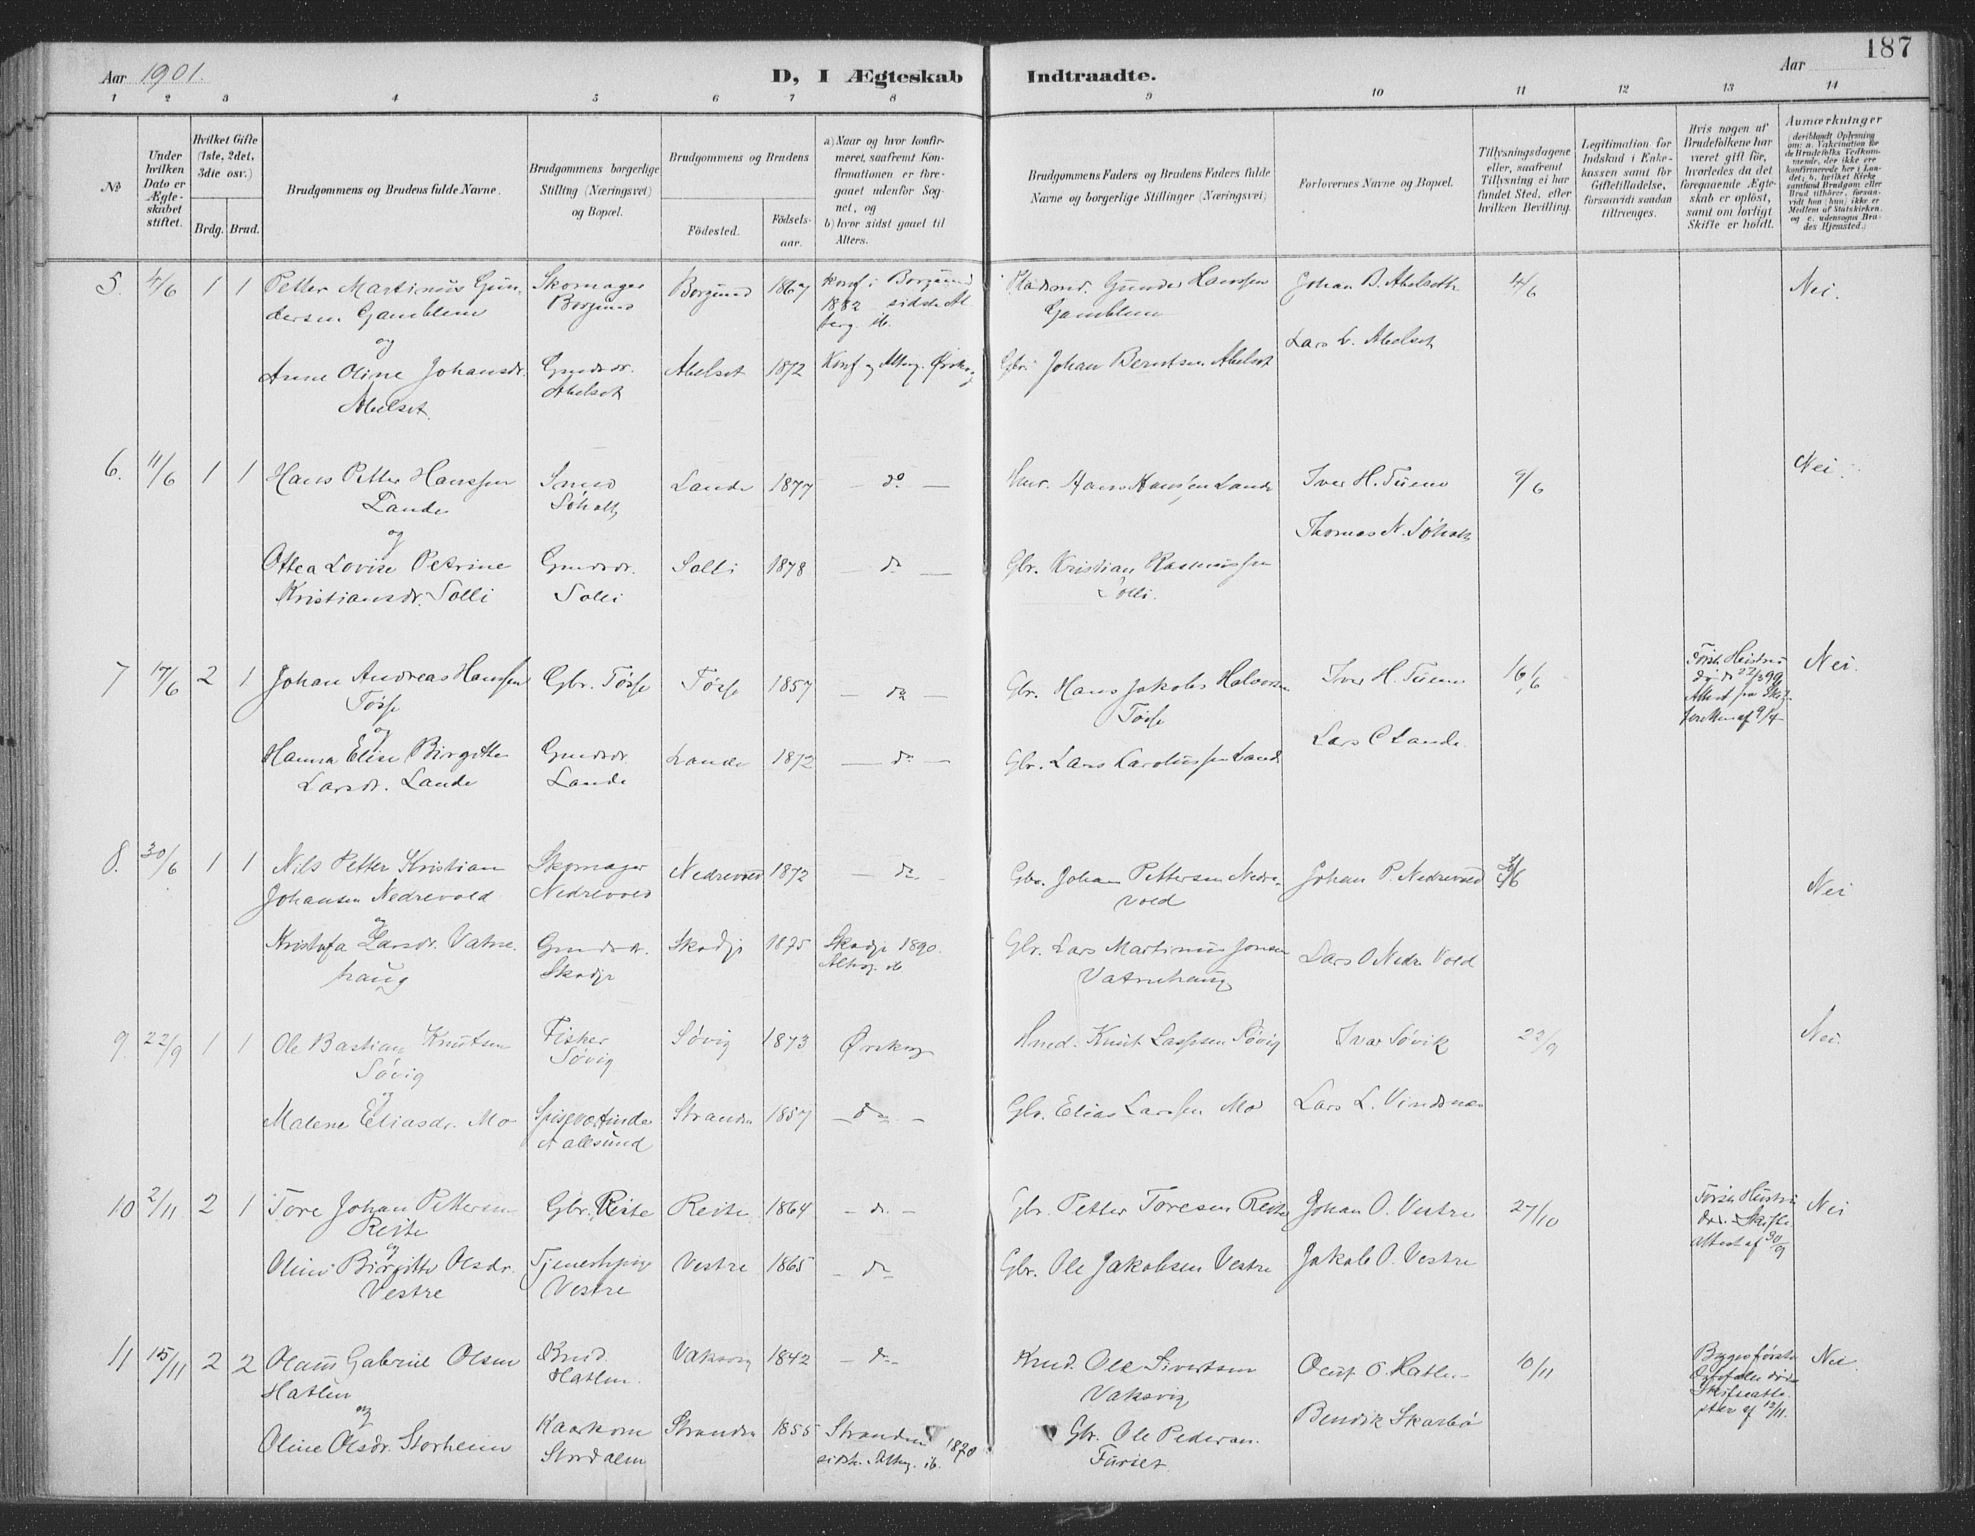 187
Aar 1901.
D, I Ægteskab Indtraadte.
Aar
1 2 3 4 5 6 7 8 9 10 11 12 13 14
№
Under hvilken Dato er Ægteskabet stiftet.
Hvilket Gifte (1ste, 2det, 3die osv.)
Brdg. Brud.
Brudgommens og Brudens fulde Navne.
Brudgommens borgerlige Stilling (Næringsvei) og Bopæl.
Brudgommens og Brudens
Fødested.
Fødselsaar.
a) Naar og hvor konfirmeret, saafremt Konfirmationen er foregaaet udenfor Sognet, og
b) hvor sidst gaaet til Alters.
Brudgommens Faders og Brudens Faders fulde Navne og borgerlige Stillinger (Næringsvei)
Forlovernes Navne og Bopæl.
Tillysningsdagene eller, saafremt Tillysning ei har fundet Sted, efter hvilken Bevilling.
Legitimation for Indskud i Enkekassen samt for Giftetilladelse, forsaavidt saadan tiltrænges.
Hvis nogen af Brudefolkene har været gift før, hvorledes da det foregaaende Ægteskab er opløst, samt om lovligt Skifte er holdt.
Anmærkninger
5. 4/6 1 1 Petter Martinus Gundersen Gamblem
Skomager Borgund
Borgund 1867
Konf i Borgund 1882 sidste Alterg. ib.
Gunder Hanssen Gamblem
Johan B. Abelseth
4/6
Nei.
og
Anne Oline Johansdr. Abelset.
Gmdsdr. Abelset
Abelset 1872
Konf og Altrg. Ørskog
Gbr. Johan Berntsen Abelset
Lars L. Abelset
6. 11/6 1 1 Hans Petter Hanssen Lande
Søholt
Lande 1877 – do –
Hans Hansen Lande
Iver H. Tuene
9/6
Nei.
og
Ottea Lovise Petrine Kristiansdr. Solli
Gmdsdr. Solli
Solli 1878 – do –
Gbr. Kristian Rasmussen Solli.
Thomas N. Søholt
7 17/6 2 1 Johan Andreas Hanssen Tøsse
Gbr. Tøsse
Tøsse 1857 – do –
Gbr. Hans Jakob Halvorsen Tøsse
Iver H. Tuene
16/6
Første Hustru død 22/3 99 Attest fra Skifteretten af 9/4
Nei.
og
Hanna Elise Birgitte Larsdr. Lande
Gmdsdr. Lande
Lande 1872 – do –
Gbr. Lars Carolussen Lande
Lars C Lande.
8. 30/6 1 1 Nils Petter Kristian Johansen Nedrevold
Skomager Nedrevold
Nedrevold 1872 – do –
Gbr. Johan Pettersen Nedrevold
Johan P. Nedrevold
Nei
og
Kristofa Larsdr. Vatnehaug
Gmdsdr. Skodje
Skodje 1875
Skodje 1890. Altrg. ib
Gbr. Lars Martinus Jonsen Vatnehaug
Lars O Nedre Vold
9. 22/9 1 1 Ole Bastian Knutsen Søvig
Fisker Søvig
Søvig 1873
Ørskog
Knut Larssen Søvig
Ivar Søvik
22/9
Nei.
og
Malene Eliasdr. Mo
Spiseværtinde Aalesund
Stranden 1857 – do –
Gbr. Elias Larssen Mo
Lars L. Vindsnæs
10 2/11 2 1 Tore Johan Pettersen Reite
Gbr. Reite
Reite 1864 – do –
Gbr. Petter Toresen Reite
Johan O. Vestre
27/10
Første Hustru død. Skifteattest af 30/9
Nei
og
Oline Birgitte Olsdr. Vestre
Tjenestepige Vestre
Vestre 1865 – do –
Gbr. Ole Jakobsen Vestre
Jakob O. Vestre
11 15/11 2 2 Olaus Gabriel Olsen Hatlen
Hatlen.
Vaksvig 1842 – do –
Ole Sivertsen Vaksvig
O. Hatlen
10/11
Begges første døde af 12/11.
Nei.
og
Oline Olsdr. Storheim
Stordalen
Stranden 1855
Stranden 1870 sidste Altrg. ib.
Gbr. Ole Pedersen Furset
Bendik Skarbø